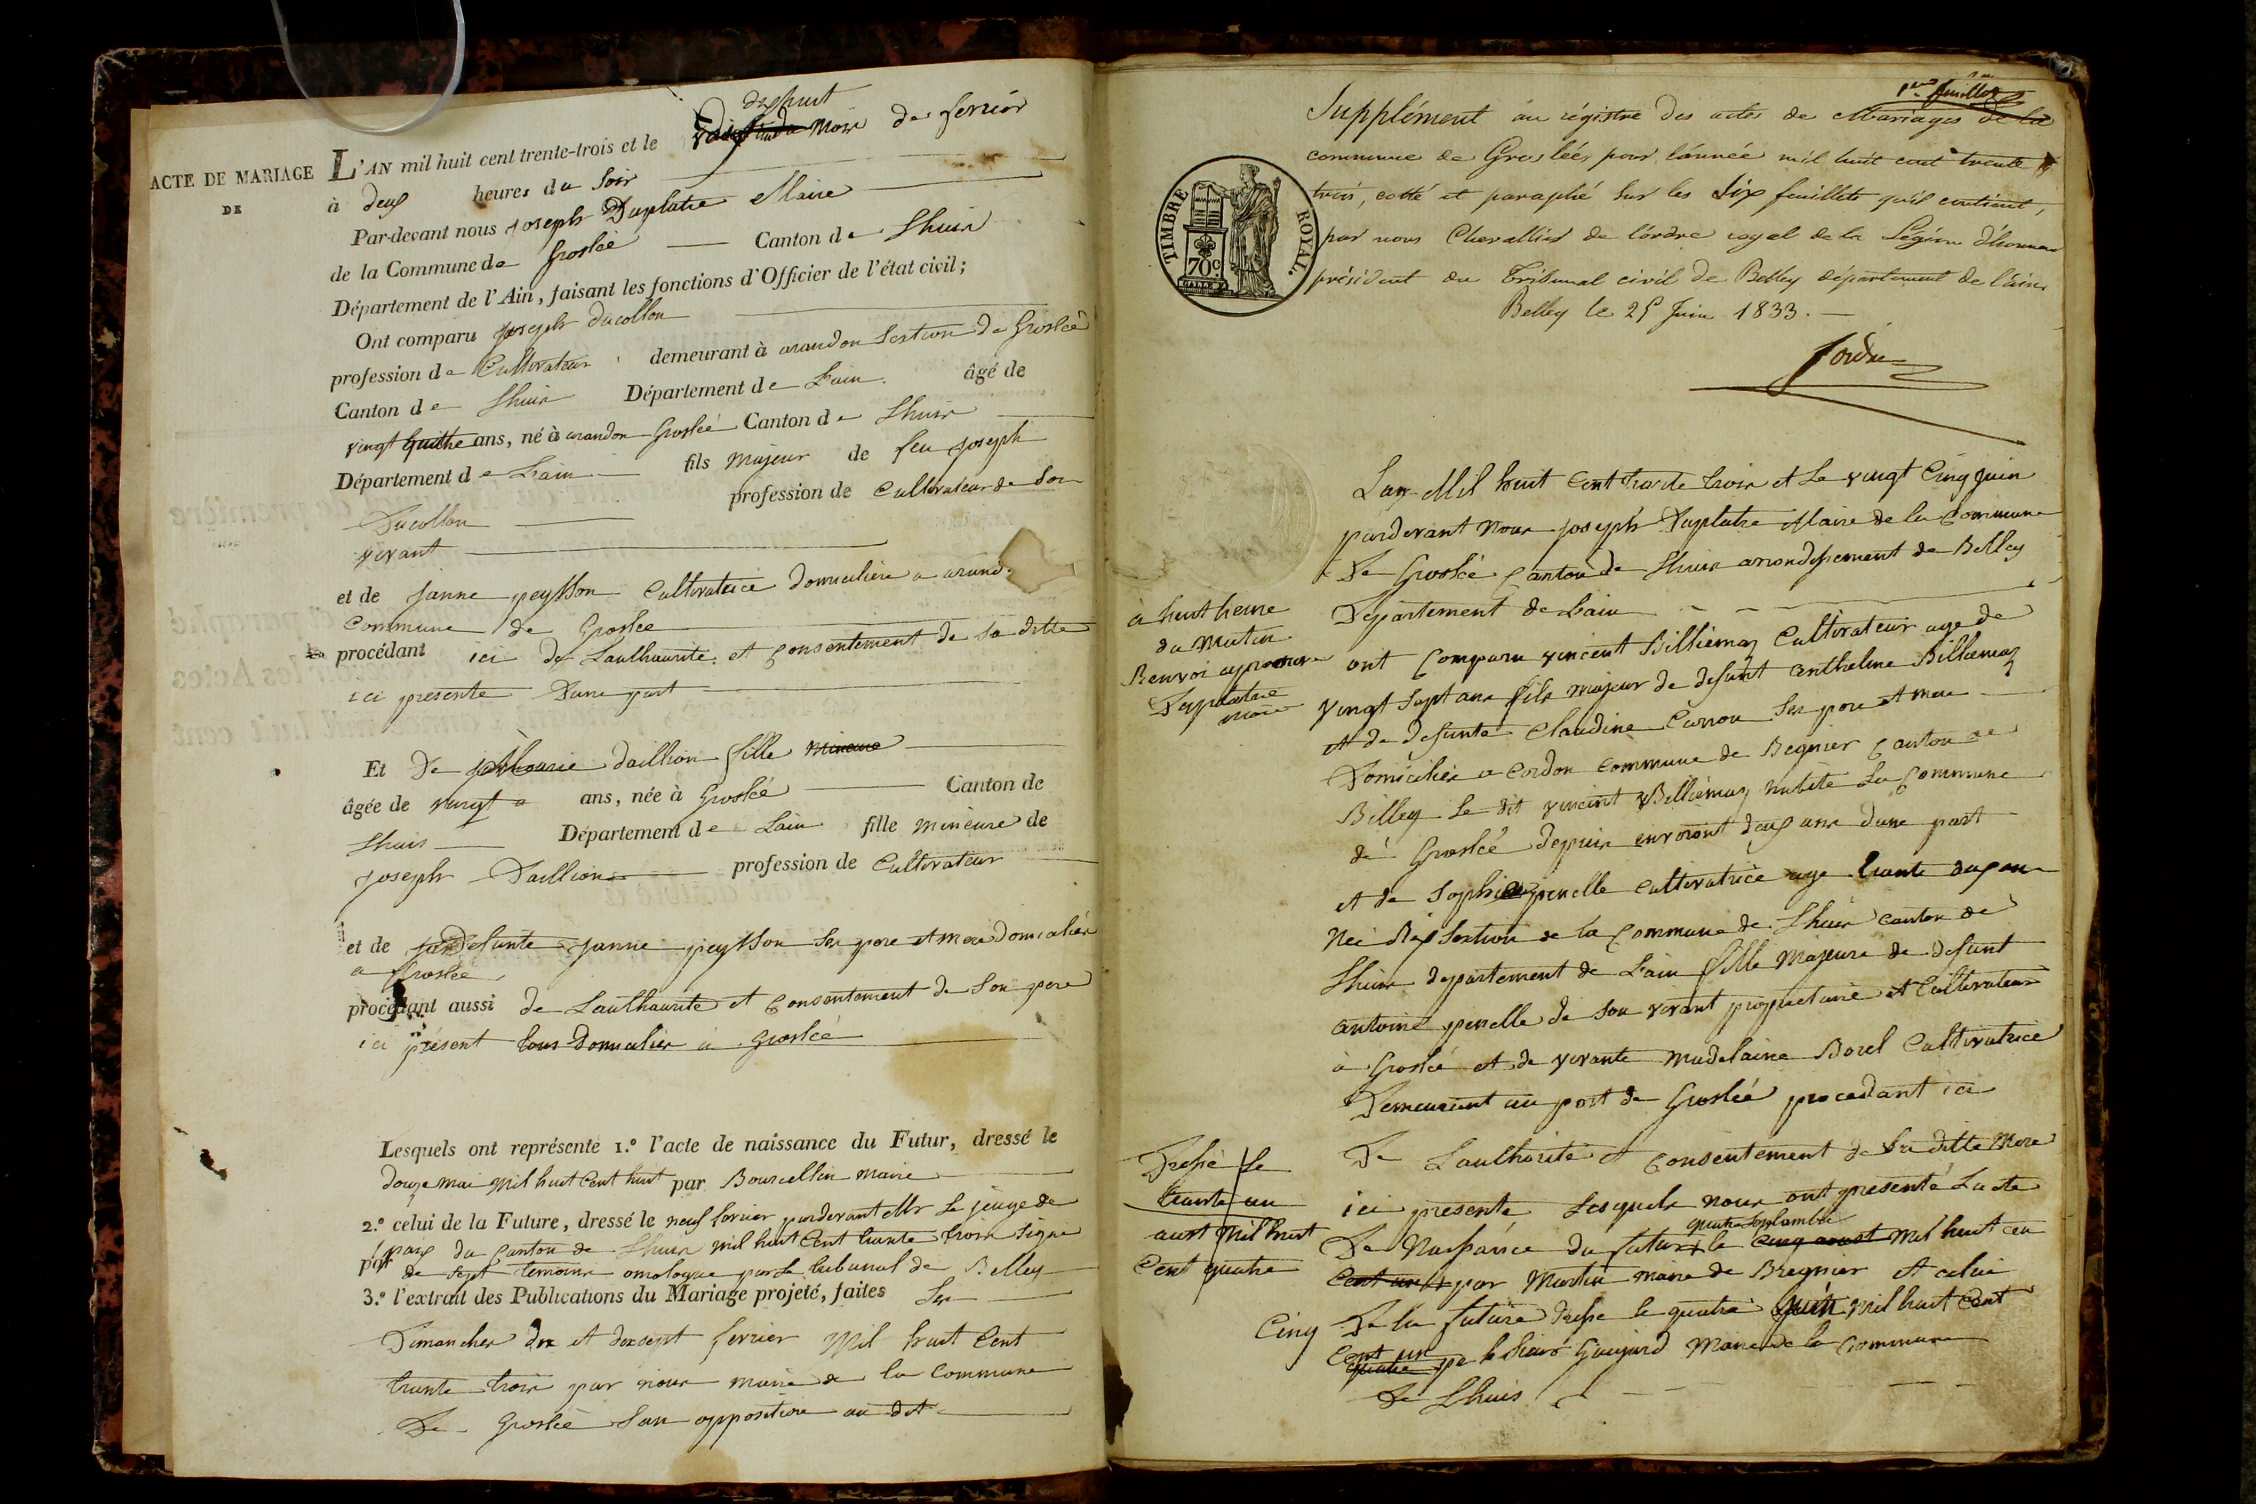 ACTE DE MARIAGE
DE
L'AN mil huit cent trente-trois et le dixhuit mois de fevrier
à deux heures du soir
Par-devant nous joseph Duplatre Maire
de la Commune de Groslée Canton de Lhuis
Département de l'Ain, faisant les fonctions d'Officier de l'état civil;
Ont comparu joseph ducollon
profession de Cultivateur demeurant à arandon Section de Groslée
Canton de Lhuis Département de Lain âgé de
vingt quatre ans, né à arandon Groslée Canton de Lhuis
Département de Lain fils Majeur de feu joseph
Ducollon profession de Cultivateur de Son
vivant
et de janne peysson Cultivatrice domiciliée a arand
Commune de Groslée
procédant ici de Laulthaurité et Consentement de sa ditte
ici presente Dune part
Et De Marie daillion fille mineure
âgée de vingt ans, née à Groslée Canton de
Lhuis Département de Lain fille mineure de
joseph Daillion profession de Cultivateur
et de defunte janne peysson Ses pere et mere domiciliés
a Groslée
procédant aussi de Laulthaurité et Consentement de Son pere
ici présent tous domiciliés à Groslée
Lesquels ont représenté 1.º l'acte de naissance du Futur, dressé le
douze mai mil huit Cent huit par Bourcellin maire
2.º celui de la Future, dressé le neuf fevrier pardevant Mr le jeuge de
paix du Canton de Lhuis mil huit Cent trante trois Signé
par de sept temoins omologue par le tribunal de Belley
3.º l'extrait des Publications du Mariage projeté, faites Les
Dimanches dix et dixsept fevrier mil huit Cent
trante trois par nous maire de la Commune
De Groslée San opposition au dit
1er feuillet
Supplément au régistre des actes de Mariages de la
commune de Groslées pour l'année mil huit cent trente
trois, cotté et paraphé sur les Six feuillets qu'il contient,
par nous Chevallier de l'ordre royal de la Légion d'honneur
président du Tribunal civil de Belley département de l'ain
Belley le 25 Juin 1833.
TIMBRE ROYAL.
70c
Lan Mil huit Cent trante trois et Le vingt Cinq juin
pardevant Nous joseph Duplatre Maire de la Commune
De Groslée Canton de Lhuis arrondissement de Belley
Département de Lain
à huit heure
du Matin
Renvoi approuve
Duplatre
maire
ont Comparu vincent Billiemaz Cultivateur age de
vingt Sept ans fils majeur de defunt anthelme Billiemaz
et de defunte Claudine Carron Ses pere et mere
Domiciliée a Cordon Commune de Bregnier Canton de
Billey Le dit vincent Billiemaz habite La Commune
de Groslée depuis environt deux ans dune part
et de Sophie penelle cultivatrice age trante deux an
Née Rix Section de la Commune de Lhuis canton de
Lhuis departement de Lain fille Majeure de defunt
antoine penelle de son vivant propriétaire et Cultivateur
à Groslée et de vivante Madelaine Borel Cultivatrice
Demeurant au port de Groslée procedant ici
De Laulthorité et Consentement de Sa ditte Mere
ici presente Lesquels nous ont presenté Lacte
De Naissance du futur le quatre Septembre cinq aoust Mil huit cen
cent un par Martin maire de Bregnier et celui
De la future dresse le quatre juin mil huit Cent
Cent un quatre par le Sieur Gaujard Maire de la Commune
De Lhuis
Dressé Le
trante un
aust Mil huit
Cent quatre
Cinq